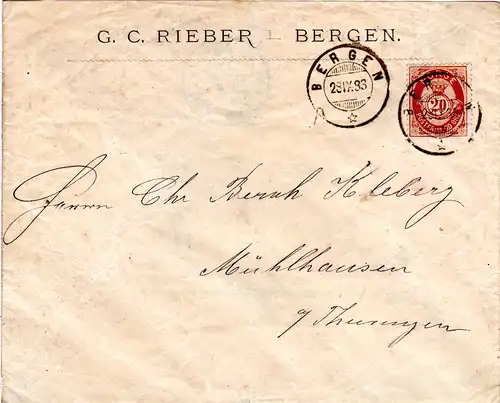 G. C. RIEBER – BERGEN.
BERGEN
BERGEN
20
Herrn Chr Bernh Kleberg
Mühlhausen
Thuringen